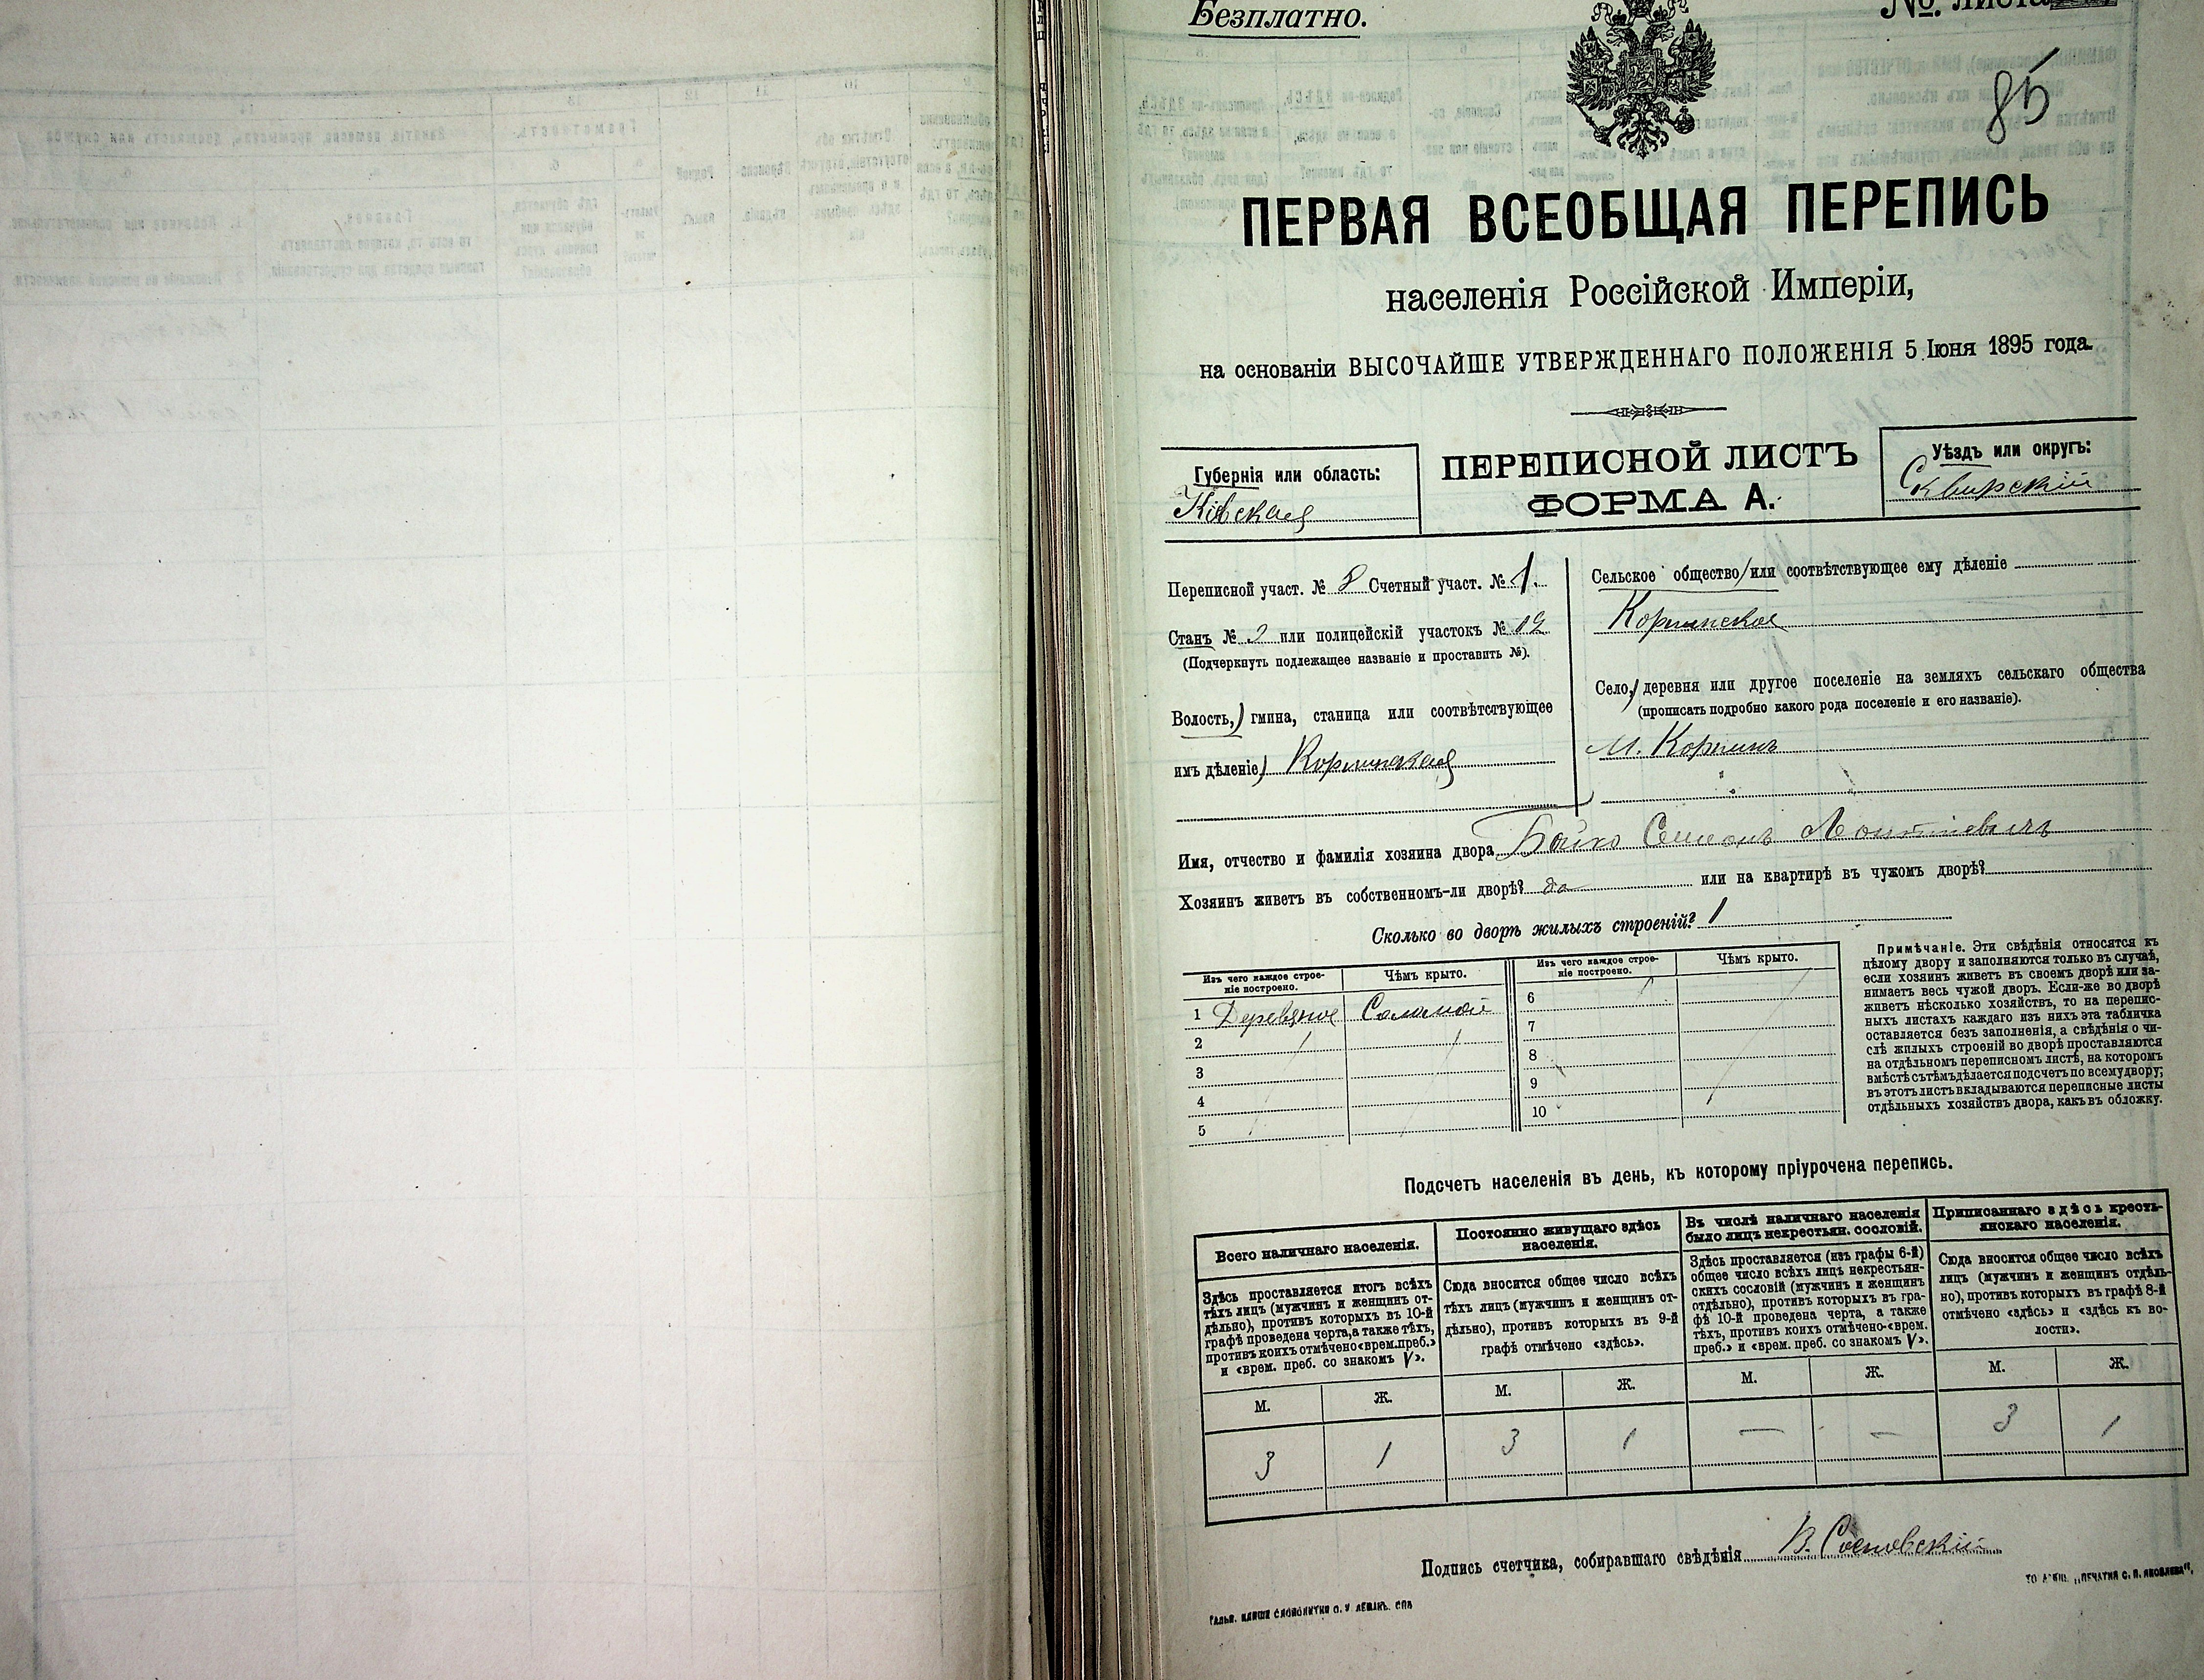 Безплатно.
№ листа
85
ПЕРВАЯ ВСЕОБЩАЯ ПЕРЕПИСЬ
населенія Россійской Имперіи,
на основаніи ВЫСОЧАЙШЕ УТВЕРЖДЕННАГО ПОЛОЖЕНІЯ 5 Іюня 1895 года.
Губернія или область:
Кіевская
ПЕРЕПИСНОЙ ЛИСТЪ
ФОРМА А.
Уѣздъ или округъ:
Сквирскій
Переписной участ. № 8 Счетный участ. № 1.
Станъ № 2 или полицейскій участокъ № 12
(Подчеркнуть подлежащее названіе и проставить №).
Волость, гмина, станица или соотвѣтствующее
имъ дѣленіе) Корнинская
Сельское общество/или соотвѣтствующее ему дѣленіе
Корнинское
Село, деревня или другое поселеніе на земляхъ сельскаго общества
(прописать подробно какого рода поселеніе и его названіе).
м. Корнинъ
Имя, отчество и фамилія хозяина двора Бойко Семенъ Леонтіевичъ
Хозяинъ живетъ въ собственномъ-ли дворѣ? да или на квартирѣ въ чужомъ дворѣ?
Сколько во дворѣ жилыхъ строеній? 1
Изъ чего каждое строе-
ніе построено.
Чѣмъ крыто.
Изъ чего каждое строе-
ніе построено.
Чѣмъ крыто.
1 Деревяное Соломой
2
3
4
5
6
7
8
9
10
Примѣчаніе. Эти свѣдѣнія относятся къ
цѣлому двору и заполняются только въ случаѣ,
если хозяинъ живетъ въ своемъ дворѣ или за-
нимаетъ весь чужой дворъ. Если-же во дворѣ
живетъ нѣсколько хозяйствъ, то на перепис-
ныхъ листахъ каждаго изъ нихъ эта табличка
оставляется безъ заполненія, а свѣдѣнія о чи-
слѣ жилыхъ строеній во дворѣ проставляются
на отдѣльномъ переписномъ листѣ, на которомъ
вмѣстѣ сътѣмъ дѣлается подсчетъ по всему двору;
въ этотъ листъ вкладываются переписные листы
отдѣльныхъ хозяйствъ двора, какъ въ обложку.
Подсчетъ населенія въ день, къ которому пріурочена перепись.
Всего наличнаго населенія.
Здѣсь проставляется итогъ всѣхъ
тѣхъ лицъ (мужчинъ и женщинъ от-
дѣльно), противъ которыхъ въ 10-й
графѣ проведена черта, а также тѣхъ,
противъ коихъ отмѣчено «врем. преб.»
и «врем. преб. со знакомъ V».
М. Ж.
3 1
Постоянно живущаго здѣсь
населенія.
Сюда вносится общее число всѣхъ
тѣхъ лицъ (мужчинъ и женщинъ от-
дѣльно), противъ которыхъ въ 9-й
графѣ отмѣчено «здѣсь».
М. Ж.
3 1
Въ числѣ наличнаго населенія
было лицъ некрестьян. сословій.
Здѣсь проставляется (изъ графы 6-й)
общее число всѣхъ лицъ некрестьян-
скихъ сословій (мужчинъ и женщинъ
отдѣльно), противъ которыхъ въ гра-
фѣ 10-й проведена черта, а также
тѣхъ, противъ коихъ отмѣчено «врем.
преб.» и «врем. преб. со знакомъ V».
М. Ж.
— —
Приписаннаго здѣсь кресть-
янскаго населенія.
Сюда вносится общее число всѣхъ
лицъ (мужчинъ и женщинъ отдѣль-
но), противъ которыхъ въ графѣ 8-й
отмѣчено «здѣсь» и «здѣсь къ во-
лости».
М. Ж.
3 1
Подпись счетчика, собиравшаго свѣдѣнія В. Сосновскій